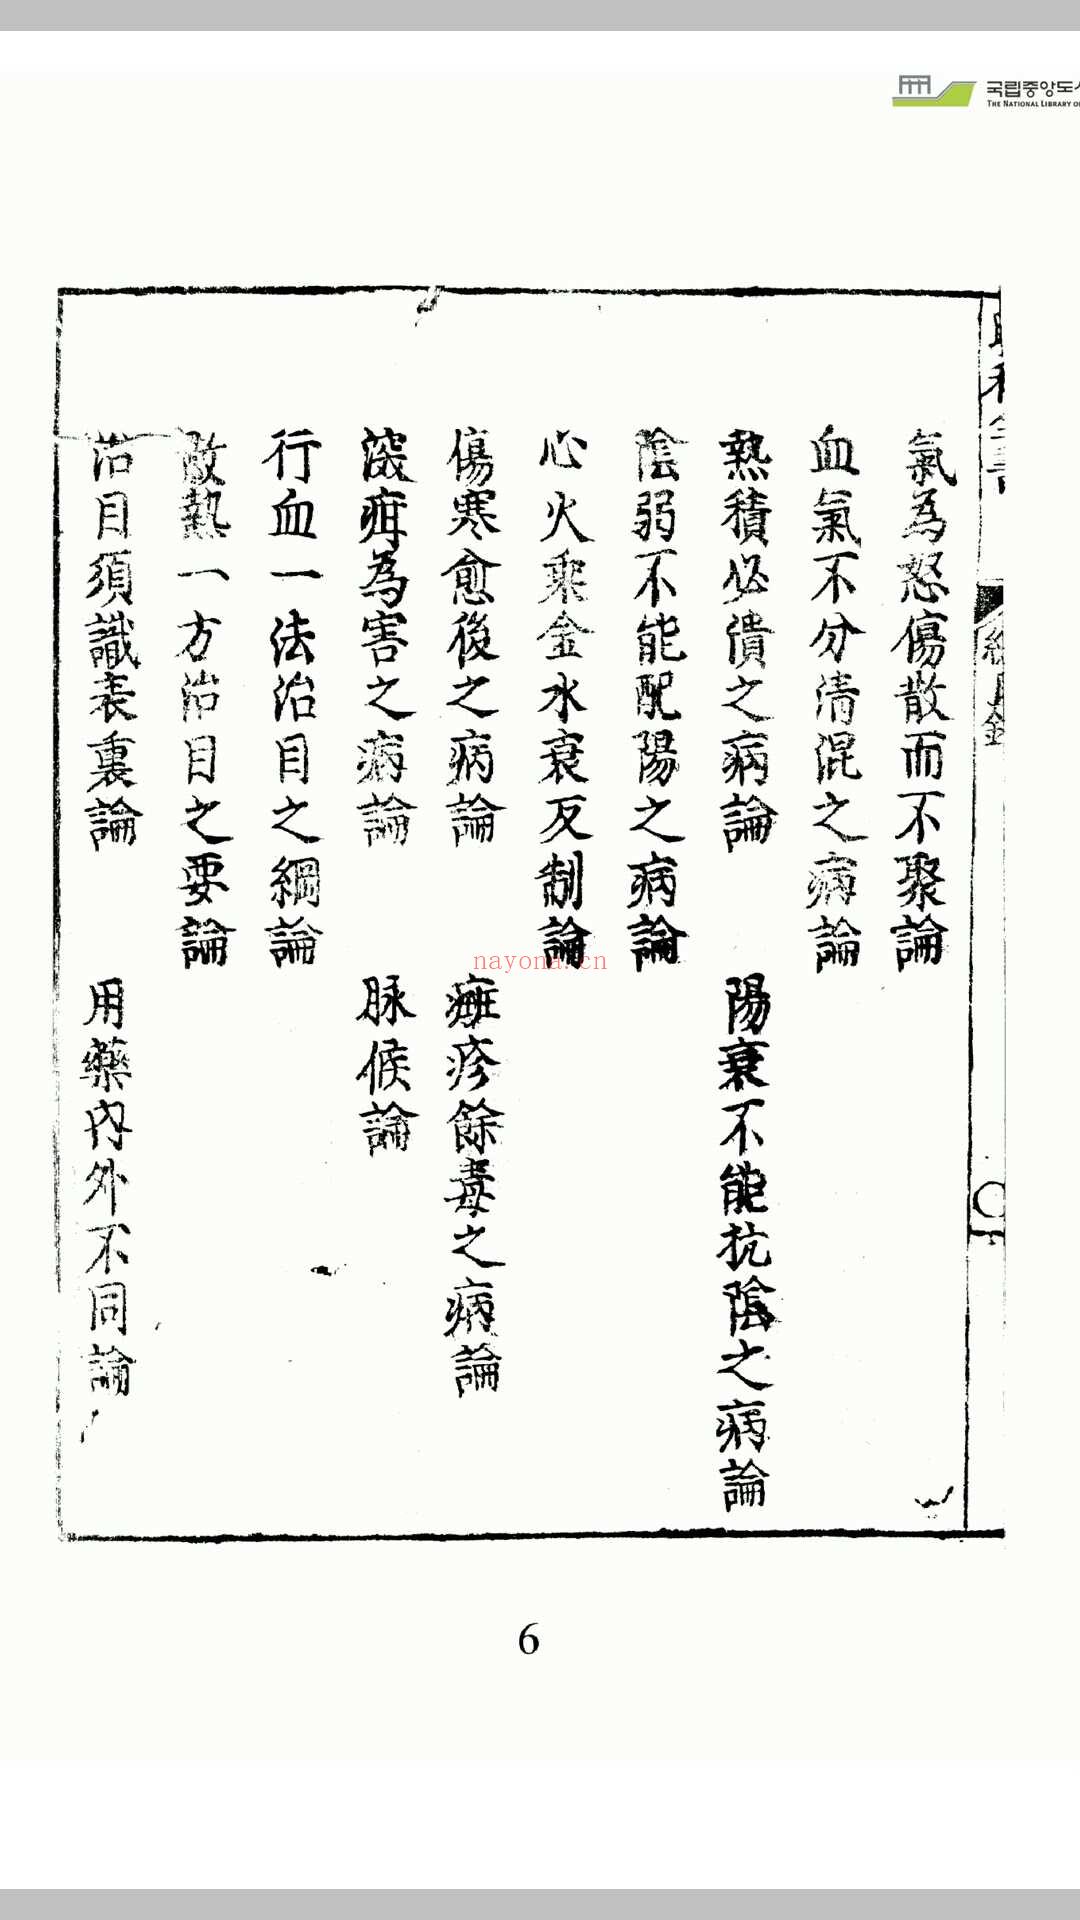 국립중앙도서
THE NATIONAL LIBRARY OF
眼科全書
總目錄
氣為怒傷散而不聚論
血氣不分清混之病論
熱積必潰之病論 陽衰不能抗陰之病論
陰弱不能配陽之病論
心火乘金水衰反制論
傷寒愈後之病論 癍疹餘毒之病論
深疳為害之病論 脉候論
行血一法治目之綱論
散熱一方治目之要論
治目須識表裏論 用藥內外不同論
nayona.cn
6